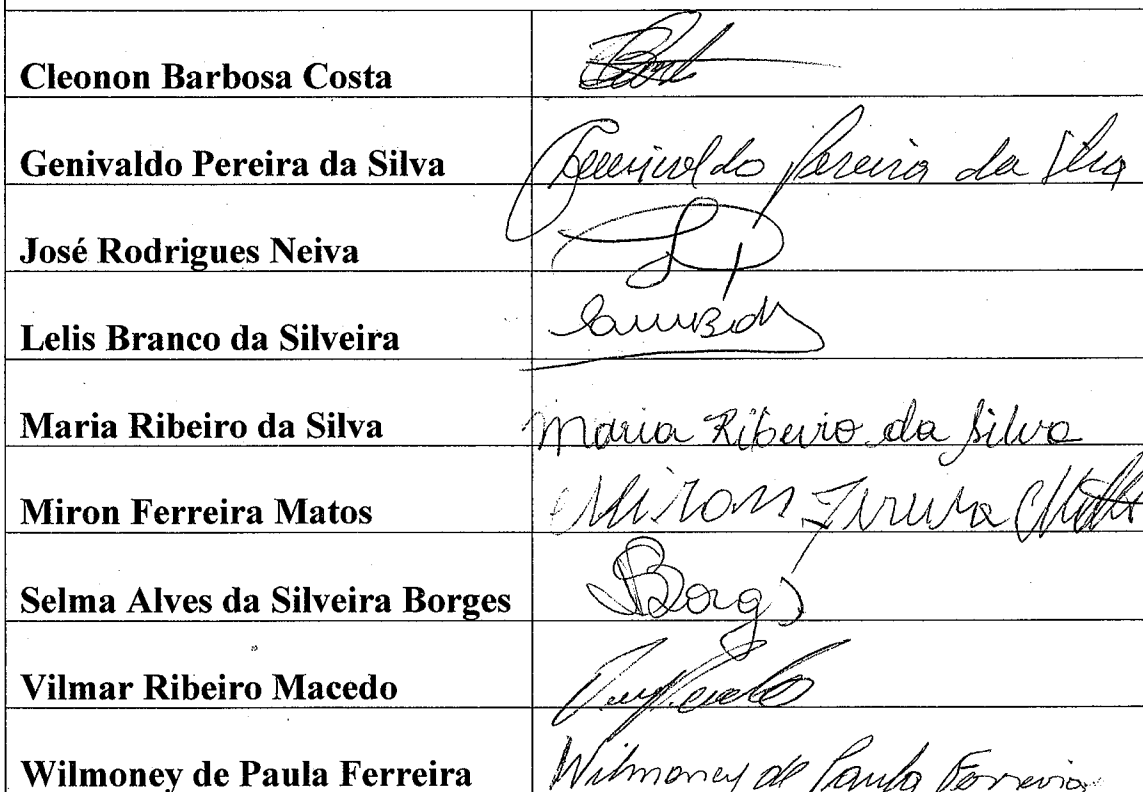 Cleonon Barbosa Costa
Genivaldo Pereira da Silva Genivaldo Pereira da Silva
José Rodrigues Neiva
Lelis Branco da Silveira
Maria Ribeiro da Silva Maria Ribeiro da Silva
Miron Ferreira Matos Miron Ferreira
Selma Alves da Silveira Borges
Vilmar Ribeiro Macedo
Wilmoney de Paula Ferreira Wilmoney de Paula Ferreira